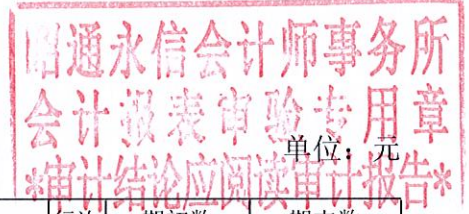 昭通永信会计师事务所
会计报表审验专用章
单位：元
*审计结论应阅读审计报告*
行次 期初数 期末数